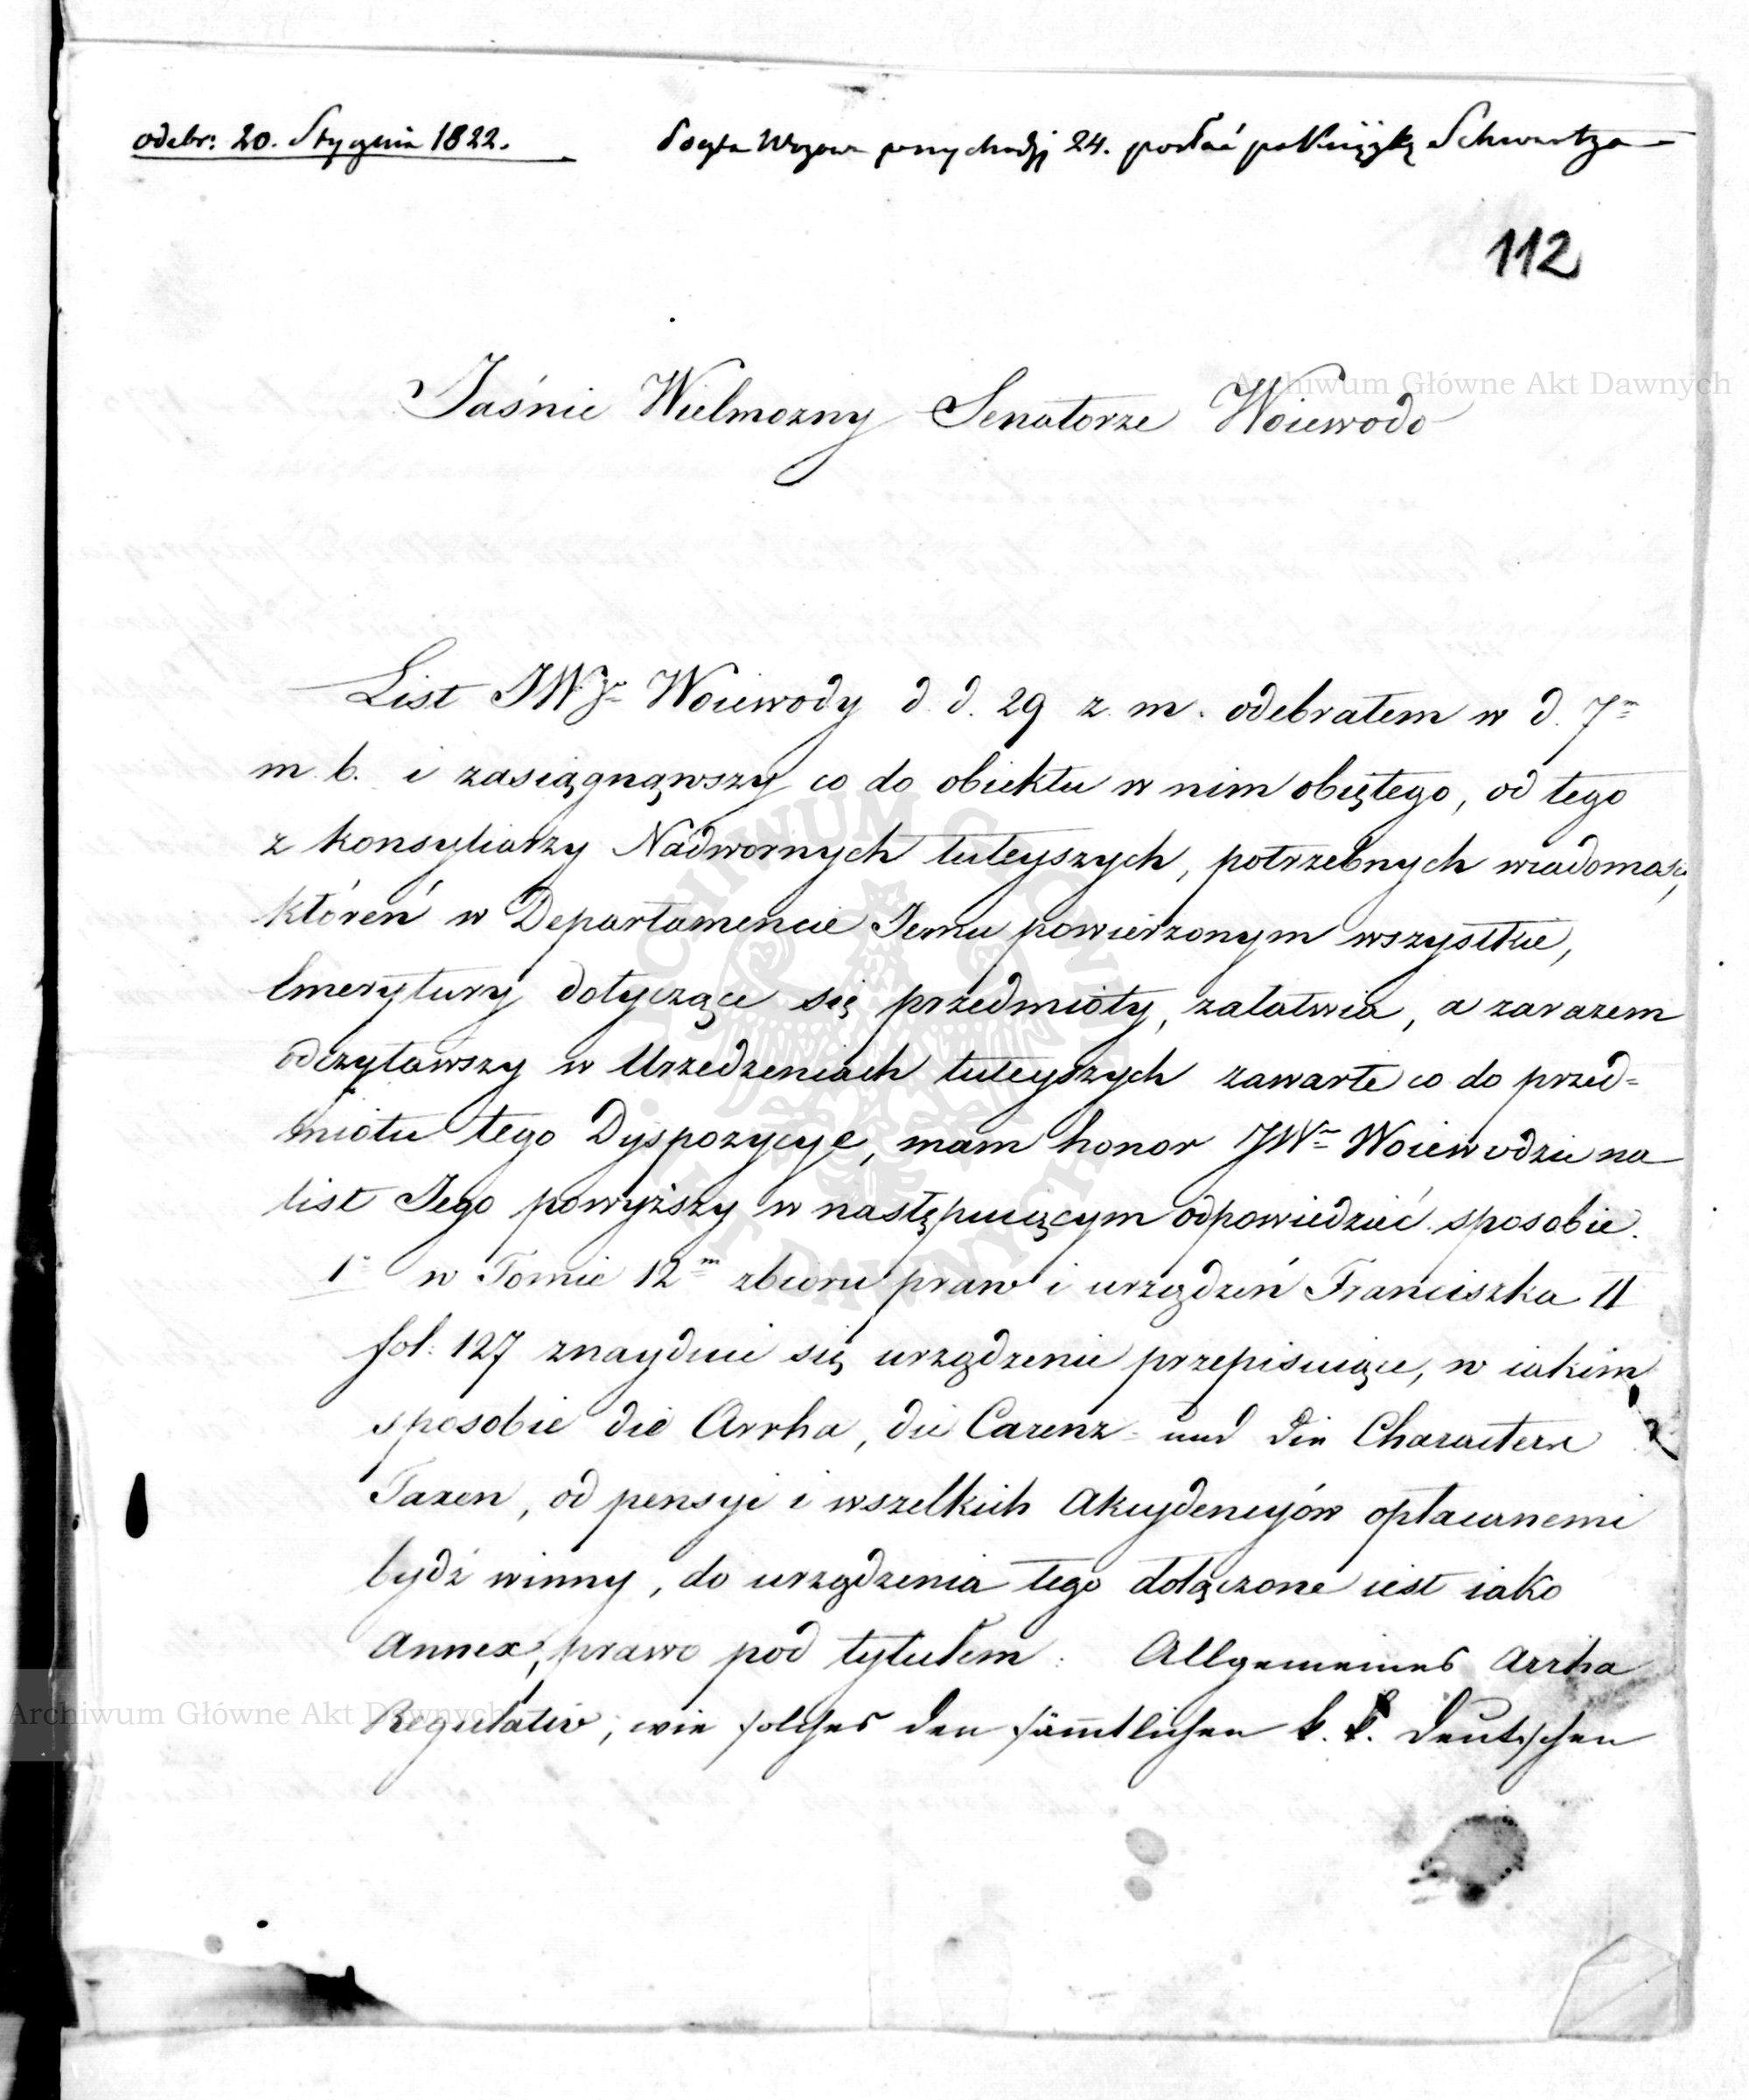 odebr: 20. Stycznia 1822.
24. posłać po Książkę Schwartza
112
Jaśnie Wielmozny Senatorze Woiewodo
List JW Woiewody d. d. 29 z. m. odebrałem w d. 7m
m. b. i zasiągnąwszy co do obiektu w nim obiętego, od tego
z konsyliarzy Nadwornych tuteyszych, potrzebnych wiadomości,
któren w Departamencie Jemu powierzonym wszystkie,
Emerytury dotyczące się przedmioty, załatwia, a zarazem
odczytawszy w Urzedzeniach tuteyszych zawarte co do przed=
miotu tego Dyspozycye, mam honor JWu Woiewodzie na
list Jego powyższy w następuiącym odpowiedzieć sposobie.
1o w Tomie 12m zbioru praw i urządzeń Franciszka II
fol: 127 znayduie się urządzenie przepisuiące, w iakim
sposobie die Arrha, die Carenz- und die Characters
Taxen, od pensyi i wszelkich akcydencyów opłacanemi
bydź winny, do urządzenia tego dołączone iest iako
Annex, prawo pod tytułem: Allgemeines Arrha
Regulativ, wie solches den sämtlichen k. k. deutschen
Archiwum Główne Akt Dawnych
Archiwum Główne Akt Dawnych
ARCHIWUM GŁÓWNE AKT DAWNYCH